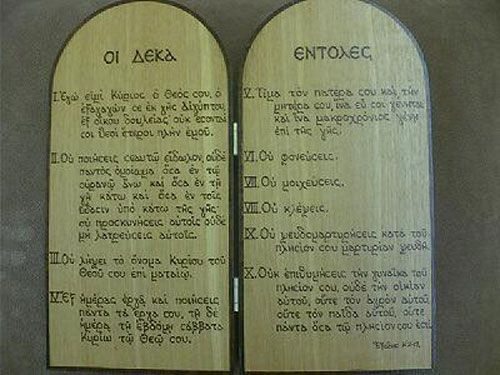 ΟΙ ΔΕΚΑ
Ι. Ἐγώ εἰμι Κύριος ὁ Θεός σου, ὁ
ἐξαγαγών σε ἐκ γῆς Αἰγύπτου,
ἐξ οἴκου δουλείας· οὐκ ἔσονταί
σοι θεοί ἕτεροι πλήν ἐμοῦ.
ΙΙ. Οὐ ποιήσεις σεαυτῷ εἴδωλον, οὐδέ
παντός ὁμοίωμα ὅσα ἐν τῷ
οὐρανῷ ἄνω καί ὅσα ἐν τῇ
γῇ κάτω καί ὅσα ἐν τοῖς
ὕδασιν ὑπό κάτω τῆς γῆς·
οὐ προσκυνήσεις αὐτοῖς οὐδέ
μή λατρεύσεις αὐτοῖς.
ΙΙΙ. Οὐ λήψει τό ὄνομα Κυρίου τοῦ
Θεοῦ σου ἐπί ματαίῳ.
ΙV. Ἕξ ἡμέρας ἐργᾷ καί ποιήσεις
πάντα τά ἔργα σου, τῇ δέ
ἡμέρᾳ τῇ ἑβδόμῃ σάββατα
Κυρίῳ τῷ Θεῷ σου.
ΕΝΤΟΛΕΣ
V. Τίμα τόν πατέρα σου καί τήν
μητέρα σου, ἵνα εὖ σοι γένηται
καί ἵνα μακροχρόνιος γένῃ
ἐπί τῆς γῆς.
VΙ. Οὐ φονεύσεις.
VΙΙ. Οὐ μοιχεύσεις.
VΙΙΙ. Οὐ κλέψεις.
ΙΧ. Οὐ ψευδομαρτυρήσεις κατά τοῦ
πλησίον σου μαρτυρίαν ψευδῆ.
Χ. Οὐκ ἐπιθυμήσεις τήν γυναῖκα τοῦ
πλησίον σου, οὐδέ τήν οἰκίαν
αὐτοῦ, οὔτε τόν ἀγρόν αὐτοῦ,
οὔτε τόν παῖδα αὐτοῦ, οὔτε
πάντα ὅσα τῷ πλησίον σου ἐστί